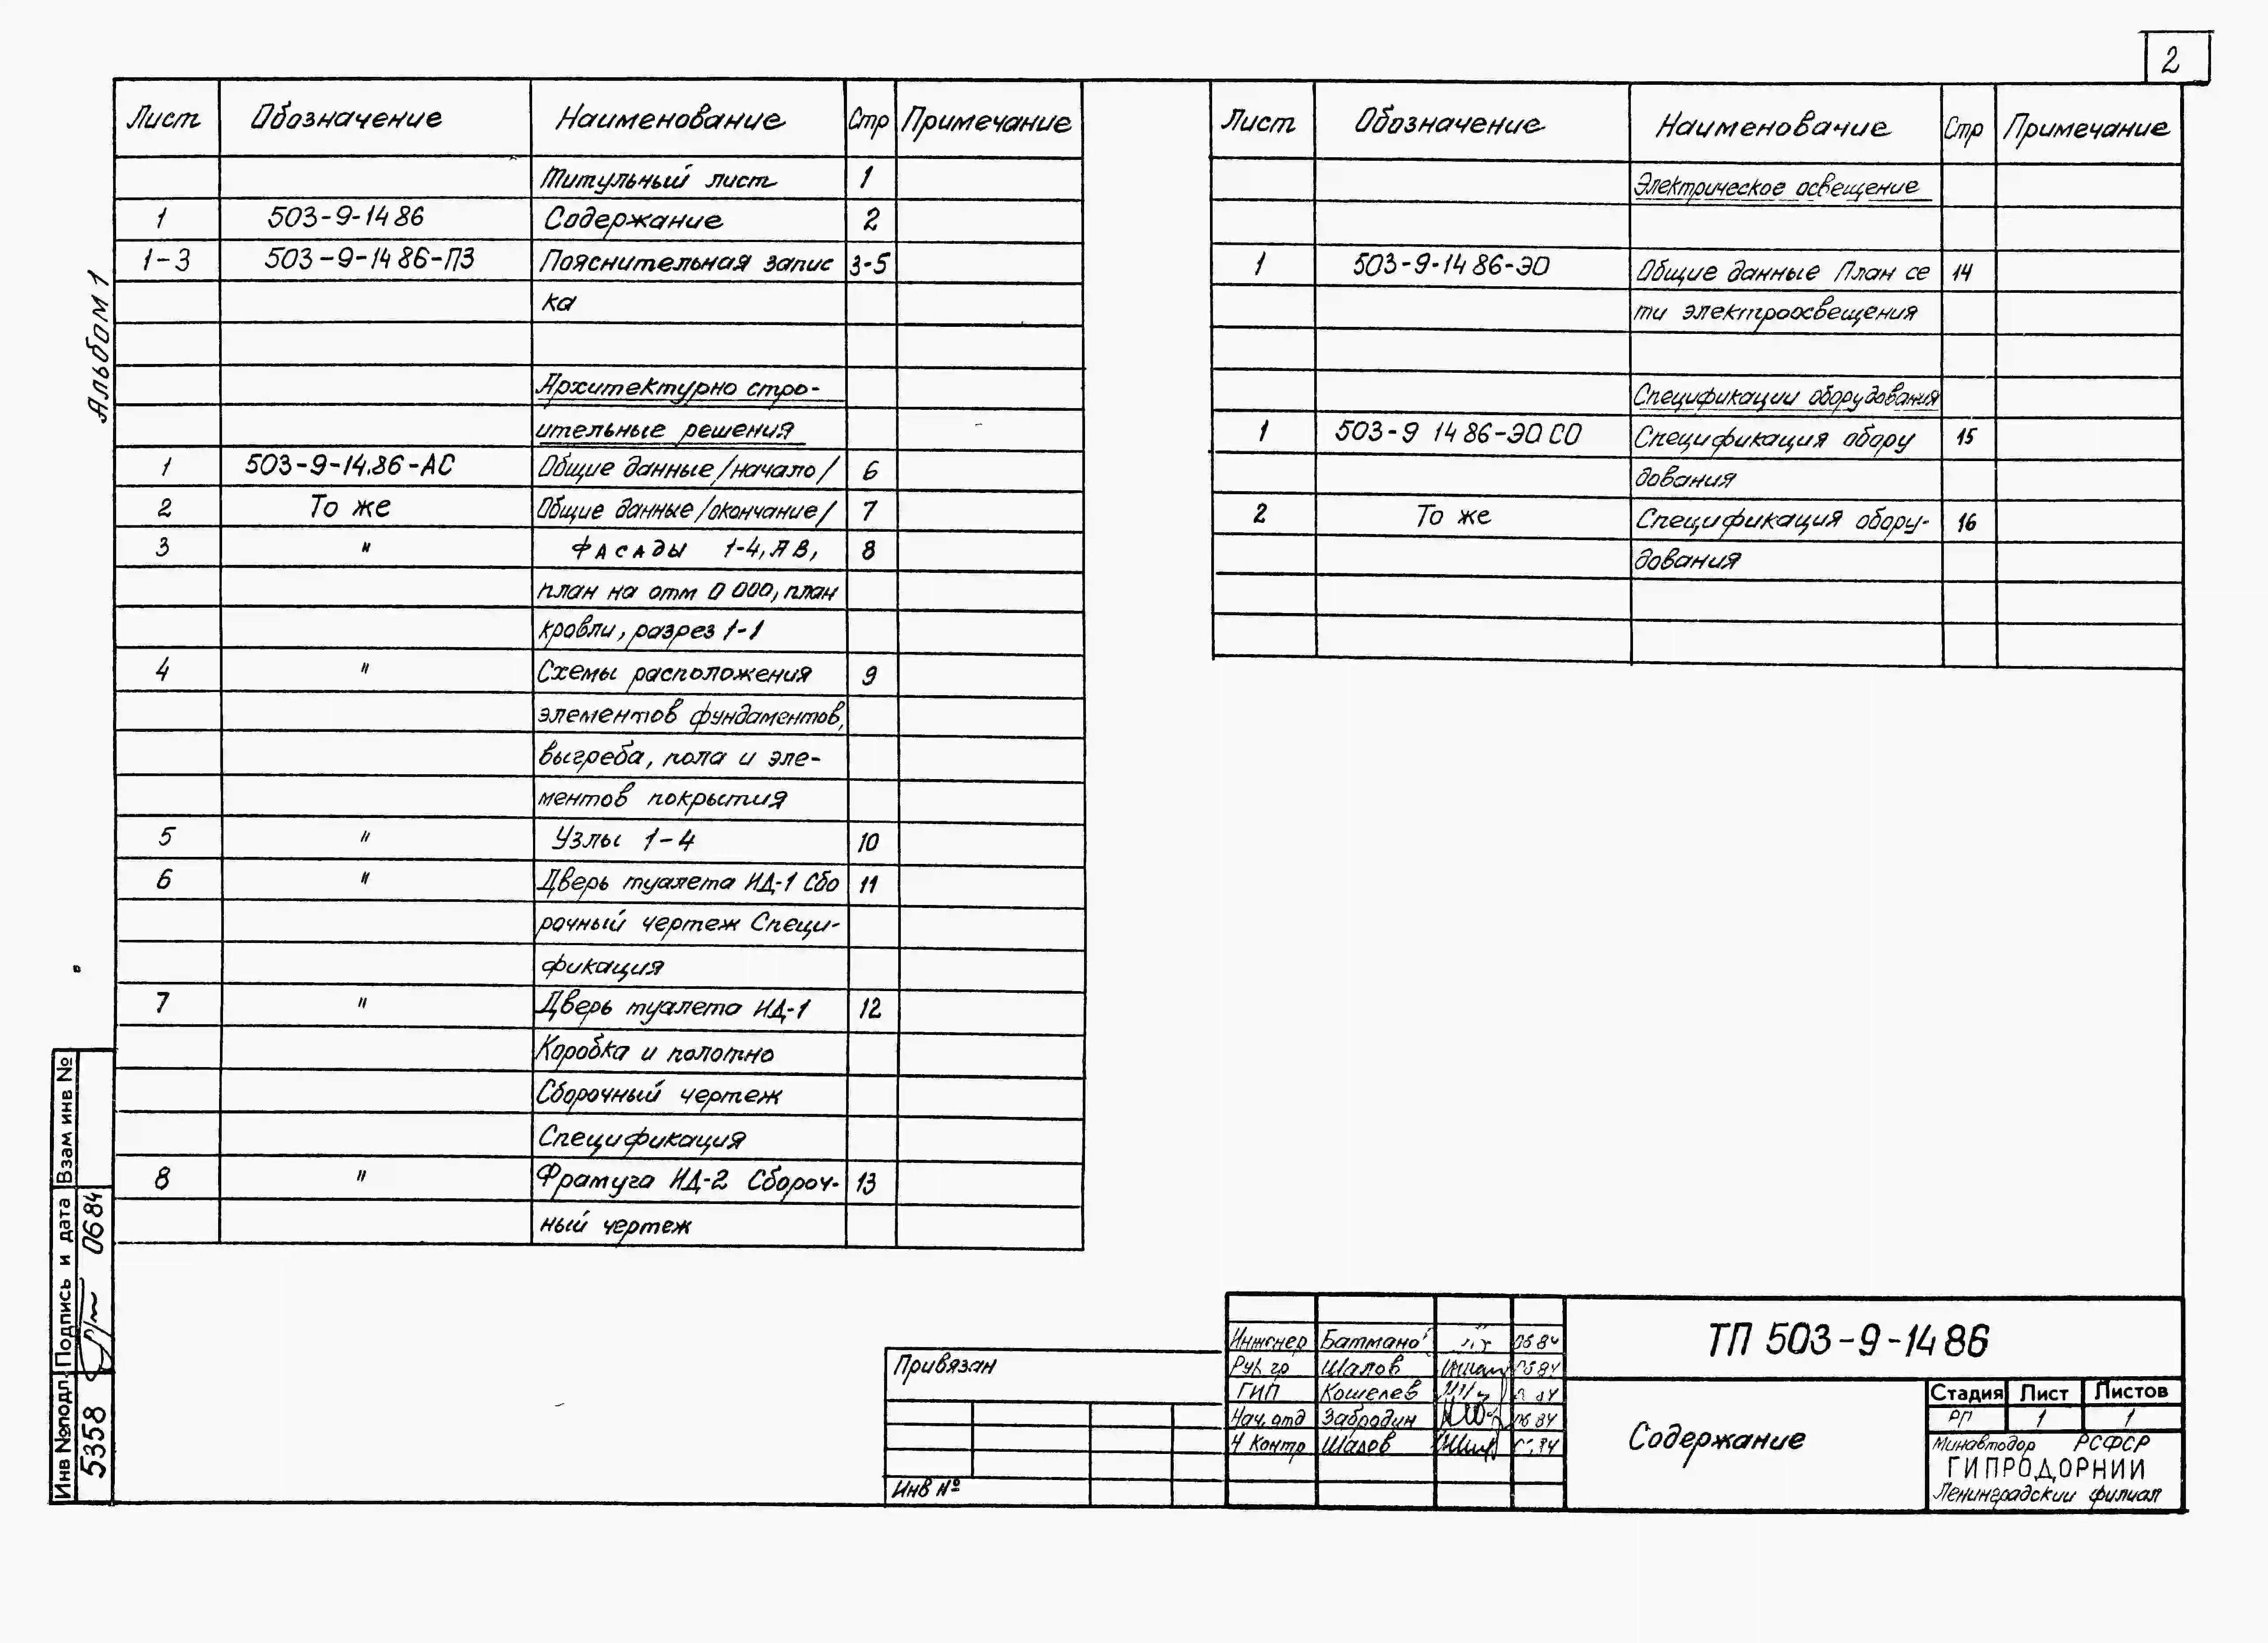 2
Альбом 1
Лист Обозначение Наименование Стр Примечание
Титульный лист 1
1 503-9-14 86 Содержание 2
1-3 503-9-14 86-ПЗ Пояснительная запис 3-5
ка
Архитектурно стро-
ительные решения
1 503-9-14.86-АС Общие данные /начало/ 6
2 То же Общие данные /окончание/ 7
3 " Фасады 1-4, А В, 8
план на отм 0 000, план
кровли, разрез 1-1
4 " Схемы расположения 9
элементов фундаментов,
выгреба, пола и эле-
ментов покрытия
5 " Узлы 1-4 10
6 " Дверь туалета ИД-1 Сбо 11
рочный чертеж Специ-
фикация
7 " Дверь туалета ИД-1 12
Коробка и полотно
Сборочный чертеж
Спецификация
8 " Фрамуга ИД-2 Сбороч- 13
ный чертеж
Лист Обозначение Наименование Стр Примечание
Электрическое освещение
1 503-9-14 86-ЭО Общие данные План се 14
ти электроосвещения
Спецификации оборудования
1 503-9 14 86-ЭО СО Спецификация обору 15
дования
2 То же Спецификация обору- 16
дования
Взам инв №
Подпись и дата 0684
Инв № подл. 5358
Привязан
Инв №
Инженер 06 84
Рук гр Шалов
ГИП Кошелев
Нач. отд Забродин 06 84
Н Контр Шалов
ТП 503-9-14 86
Содержание
Стадия Лист Листов
РП 1 1
Минавтодор РСФСР
ГИПРОДОРНИИ
Ленинградский филиал